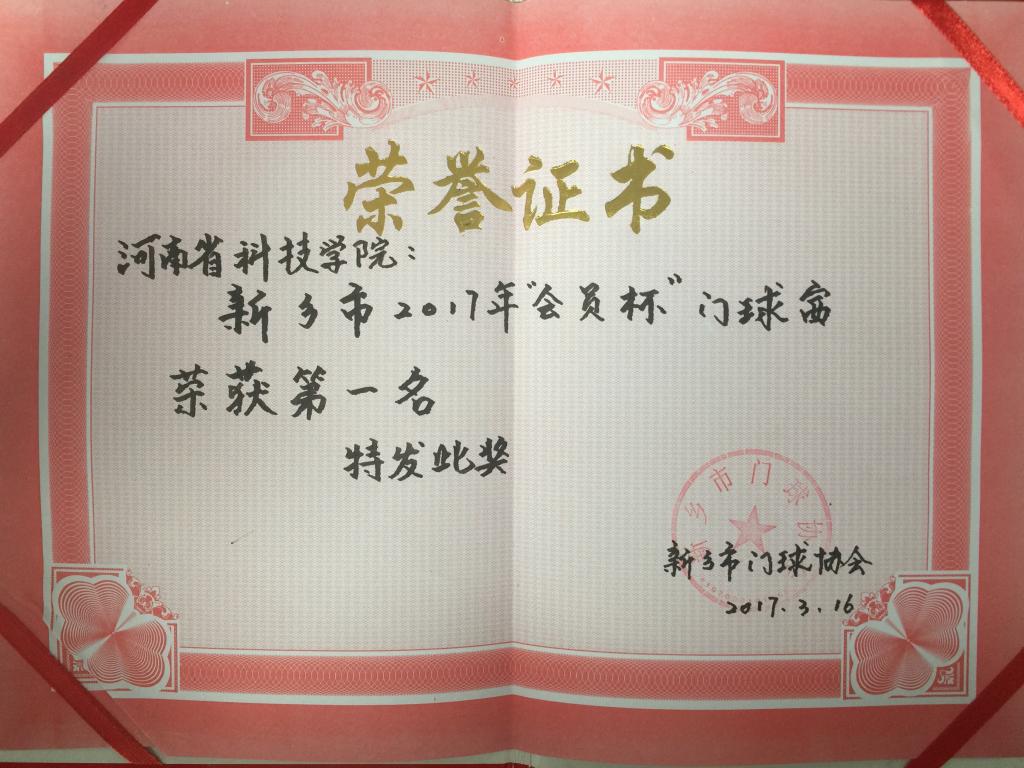 荣誉证书
河南省科技学院：
新乡市2017年“会员杯”门球赛
荣获第一名
特发此奖
新乡市门球协会
新乡市门球协会
2017.3.16